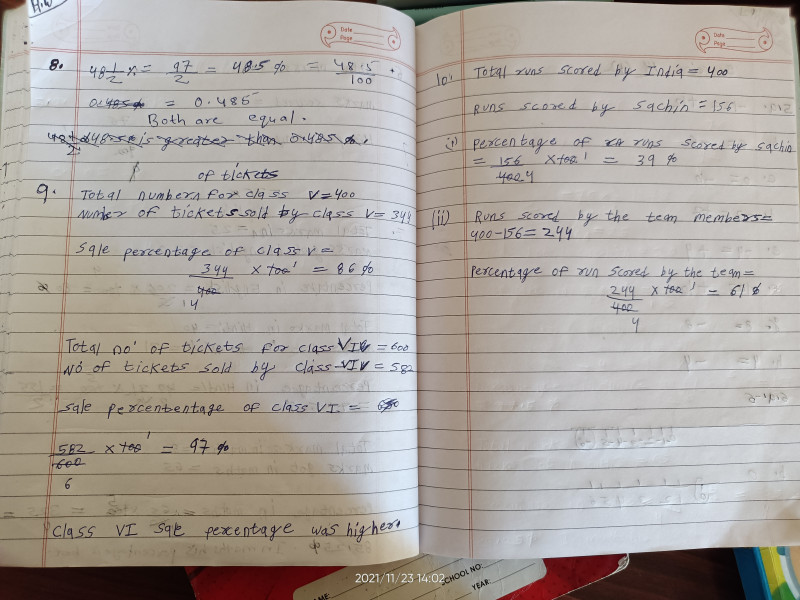 H.W
Date
Page
8. 48 1/2 % = 97/2 = 48.5 % = 48.5/100
0.485% = 0.485
Both are equal.
48 1/2 48.5% is greater than 0.485 %.
of tickets
9. Total numbers for class V = 400
Number of tickets sold by class V = 344
Sale percentage of class V =
344/400 × 100 = 86 %
4
Total no' of tickets for class VI = 600
No of tickets sold by class VI = 582
Sale percententage of class VI =
582/600 × 100 = 97 %
6
Class VI sale percentage was higher.
Date
Page
10. Total runs scored by India = 400
Runs scored by Sachin = 156
(i) Percentage of runs scored by Sachin
= 156/400 × 100 = 39 %
4
(ii) Runs scored by the team members =
400-156 = 244
Percentage of run scored by the team =
244/400 × 100 = 61 %
4
NAME:
SCHOOL NO:
YEAR:
2021/11/23 14:02